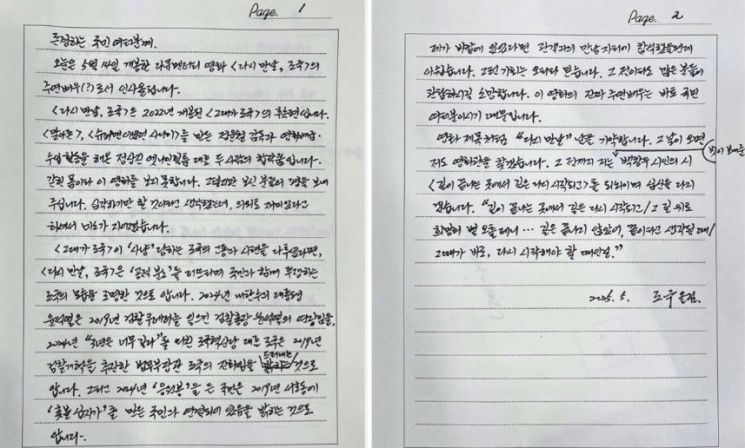 Page. 1
존경하는 국민 여러분께.
오늘은 5월 14일 개봉한 다큐멘터리 영화 <다시 만날, 조국>의
주연배우(?)로서 인사올립니다.
<다시 만날, 조국>은 2022년 개봉된 <그대가 조국>의 후속편입니다.
만든 정윤철 감독과 영화배급·
수입 활동을 해온 정상진 엣나인필름 대표 두 사람의 합작품입니다.
갇힌 몸이라 이 영화를 보지 못합니다. 그런데 보신 분들이 평을 보내
주십니다. 심각하기만 할 것이라고 생각했는데, 의외로 재미있다고
하여서 미소가 지어졌습니다.
<그대가 조국>이 '사냥'당하는 조국의 고통과 시련을 다루었다면,
<다시 만날, 조국>은 국민과 함께 투쟁하는
조국의 모습을 조명한 것으로 압니다. 2024년 내란수괴 대통령
윤석열은 2019년 검찰 쿠데타를 일으킨 검찰총장 윤석열의 연장임을,
2024년 "3년은 너무 길다"를 외친 조국혁신당 대표 조국은 2019년
검찰개혁을 추진한 법무부장관 조국의 진화임을 드러내는 것으로
압니다. 그리고 2024년 '응원봉'을 든 국민은 2019년 서초동에
'촛불 십자가'를 만든 국민과 연결되어 있음을 밝히는 것으로
압니다.
Page. 2
제가 바깥에 있었다면 관객과의 만남 자리에 참석했을텐데
아쉽습니다. 그런 기회는 오리라 믿습니다. 그 전이라도 많은 분들이
관람하시길 소망합니다. 이 영화의 진짜 주연배우는 바로 국민
여러분이시기 때문입니다.
영화 제목처럼 "다시 만날" 날을 기약합니다. 그 날이 오면
저도 영화관을 찾겠습니다. 그 전까지 저는 벗이 보내준 박노해 시인의 시
<길이 끝나는 곳에서 길은 다시 시작되고>를 되뇌이며 심신을 다지
겠습니다. "길이 끝나는 곳에서 길은 다시 시작되고 / 그 길 위로
희망의 별 오를테니 … 길은 끝나지 않았어, 끝이라고 생각될 때 /
그때가 바로, 다시 시작해야 할 때인걸."
2025. 5. 조국 올림.